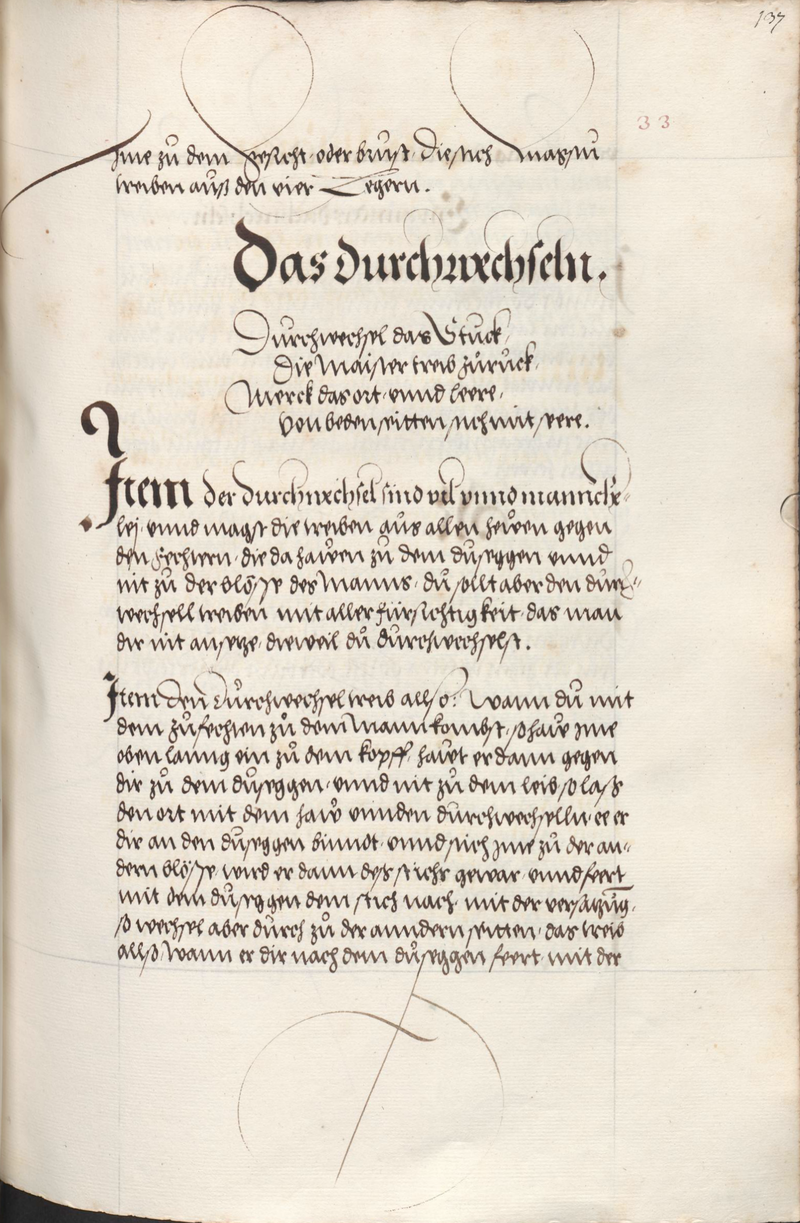 137
33
Ime zů dem gesicht, oder brust, die stich magstu
treiben auß den vier Legern.
Das durchwechseln.
Durchwechsel das Stuck,
Die Maister treib zůrůck,
Merck das ort, vnnd leere,
Von beden seitten, sich mit were.
Item der durchwechsel sind vil vnnd manncher-
lej, vnnd magst die treiben aus allen hewen gegen
den Fechtern, die da hawen zů dem dusseggen vnnd
nit zů der blösse des Manns, du sollt aber den durch-
wechsell treiben mit aller fürsichtigkeit, das man
dir nit ansetze, dieweil dů durchwechselst.
Item den durchwechsel treib allso: Wann dů mit
dem zůfechten zů dem Mann kombst, so haw Ime
oben lanng ein zů dem kopff, hawt er dann gegen
dir zů dem dusseggen, vnnd nit zů dem leib, so laß
den ort mit dem haw vnnden durchwechselln, ee er
dir an den dusseggen binndt, vnnd stich Ime zů der an-
dern blösse, wird er dann des stichs gewar, vnnd feert
mit dem dusseggen dem stich nach, mit der versatzůng,
so wechsel aber durch zů der anndern seitten, das treib
allso, Wann er dir nach dem dusseggen feert, mit der